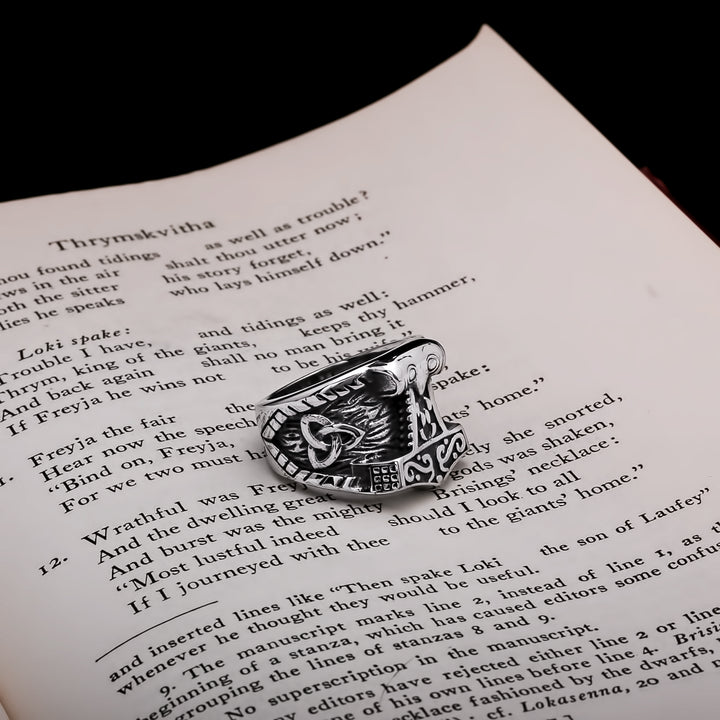 Thrymskvitha
found tidings as well as trouble?
in the air shalt thou utter now;
the sitter his story forget,
he speaks who lays himself down."
Loki spake:
Trouble I have, and tidings as well:
Thrym, king of the giants, keeps thy hammer,
And back again shall no man bring it
If Freyja he wins not to be his
Freyja the fair
spake:
Hear now the speech home."
"Bind on, Freyja,
For we two must
12. Wrathful was she snorted,
And the dwelling great gods was shaken,
And burst was the mighty Brisings' necklace:
"Most lustful indeed should I look to all
If I journeyed with thee to the giants' home."
and inserted lines like "Then spake Loki the son of Laufey"
whenever he thought they would be useful.
9. The manuscript marks line 2, instead of line 1, as
beginning of a stanza, which has caused editors some
grouping the lines of stanzas 8 and 9.
No superscription in the manuscript.
editors have rejected either line 2 or
of his own lines before line 4.
necklace fashioned by the dwarfs,
cf. Lokasenna, 20 and